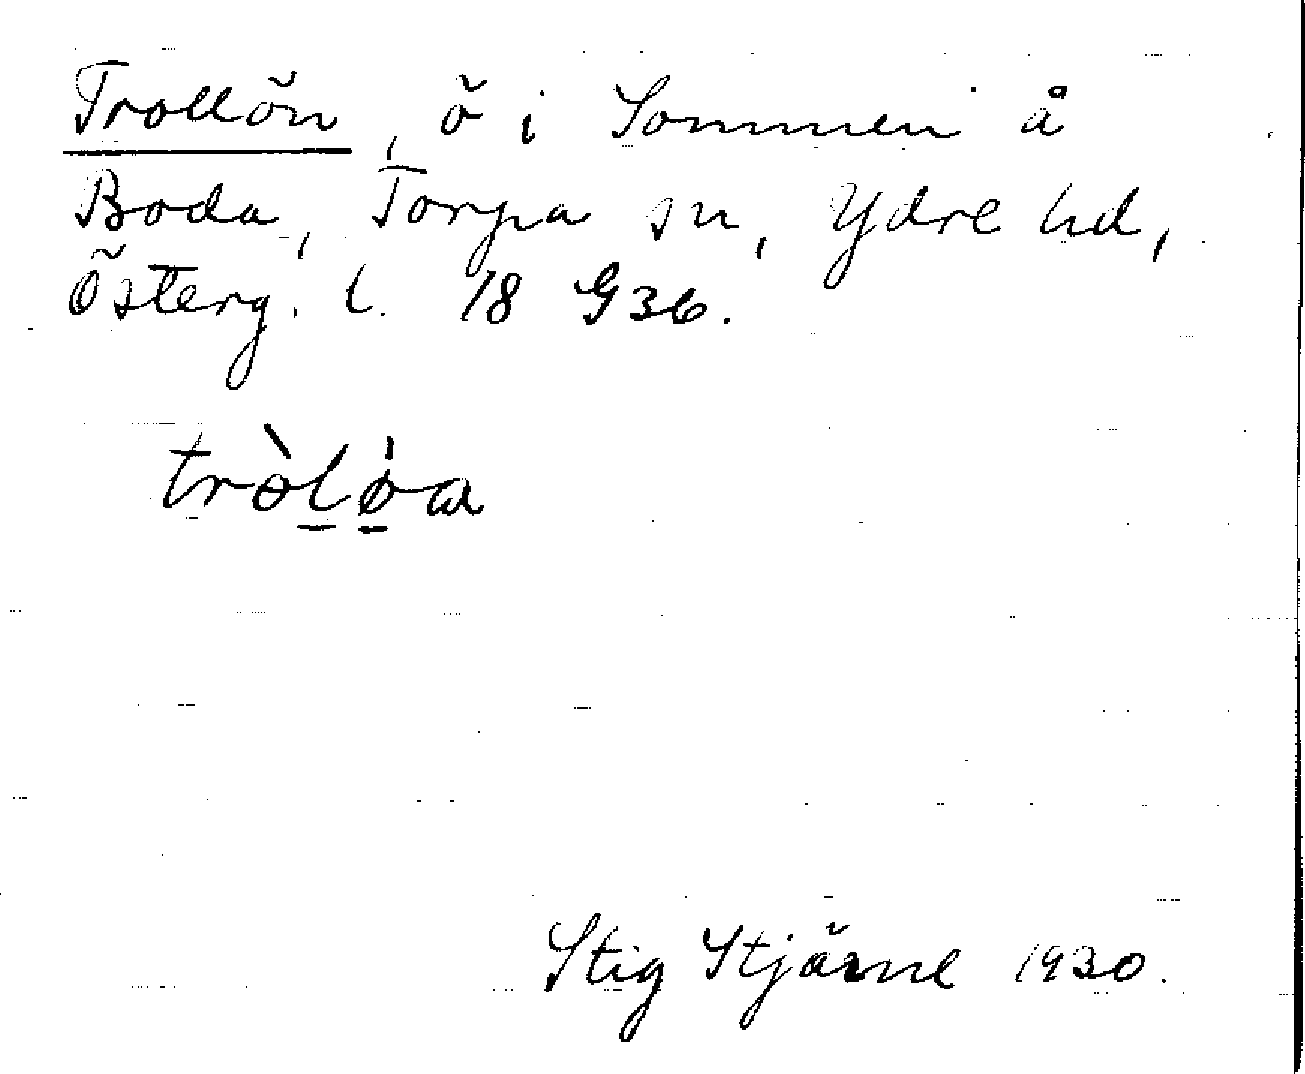 Trollön, ö i Sommen å
Boda, Torpa sn, Ydre hd,
Österg. l. 18 G36.
tròl̠ø̠̀a
Stig Stjärne 1930.